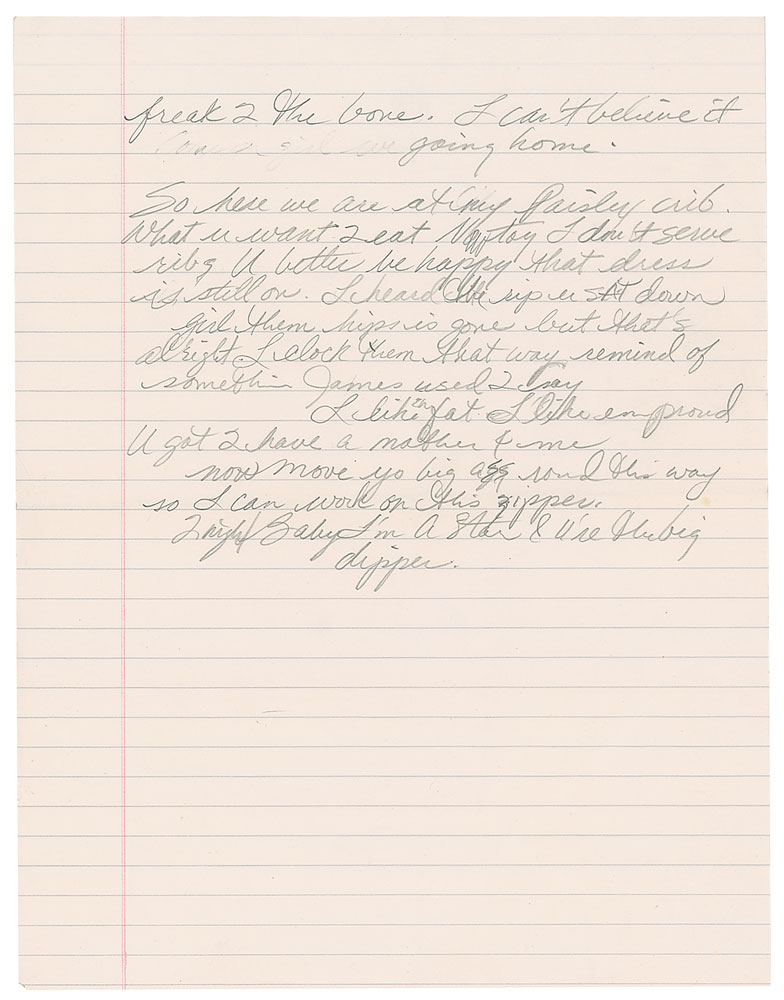 freak 2 the bone. I can't believe it
going home.
So here we are at my Paisley crib.
What u want 2 eat Nope toy I don't serve
ribs U better be happy that dress
is still on. I heard the rip u sat down
girl them hips is gone but that's
alright. I clock them that way remind of
somethin James used 2 say
I like em fat I like em proud
U got 2 have a mother 4 me
now move yo big ass round this way
so I can work on this zipper.
2night Baby I'm A Star & U're the big
dipper.